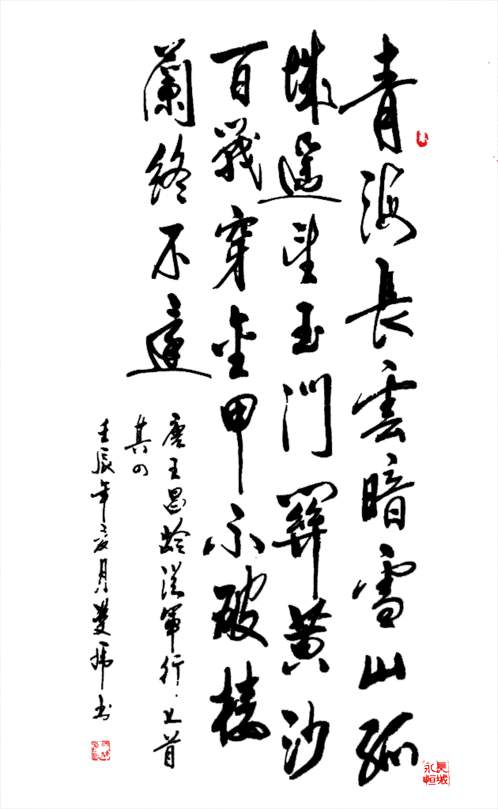 青海長雲暗雪山孤
城遙望玉門關黃沙
百戰穿金甲不破樓
蘭終不還
唐王昌龄從軍行·七首
其四
壬辰年 月 书
長城
永恒